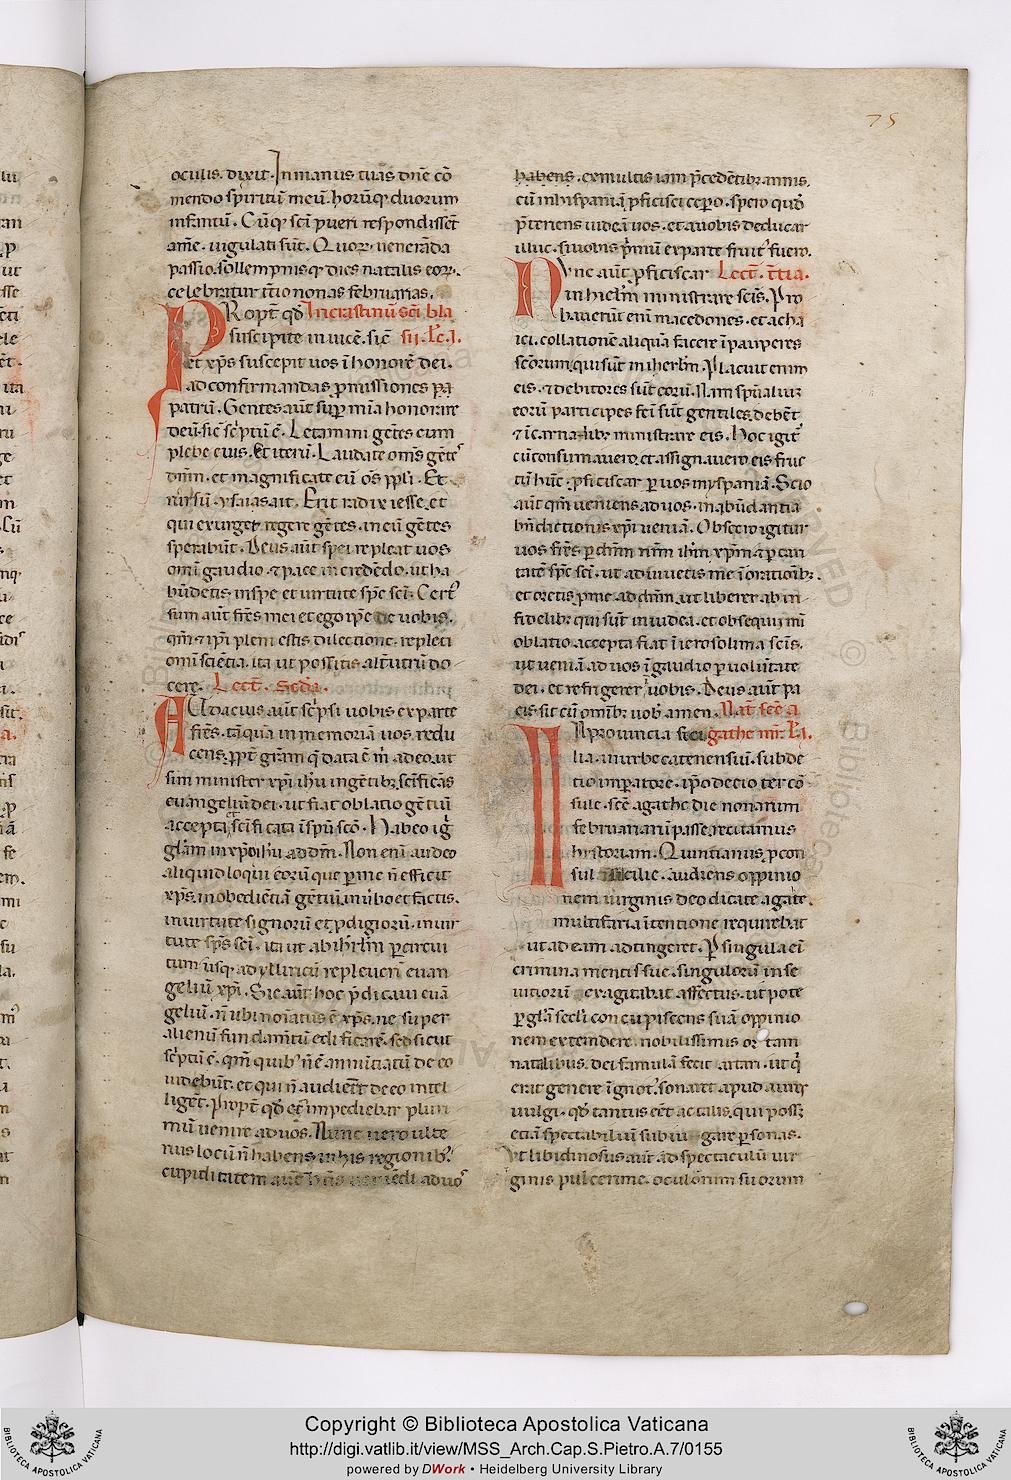 75
oculis. dixit. In manus tuas dñe cõ
mendo spiritũ meũ. horũq; duorum
infantũ. Cũq; sc̃i pueri respondissẽt
am̃e. uigulati sũt. Quoꝝ uenerãda
passio. sollempnisq; dies natalis eoꝝ.
celebratur t̃tio nonas februarias.
PRopt̃ qđ In crastinũ sc̃i bla
suscipite inuicẽ. sic̃ sii. Lc̃. I.
et xp̃s suscepit uos ĩ honorẽ dei.
ad confirmandas p̱missiones pa
patrũ. Gentes aũt sup̱ mĩa honorare
deũ. sic̃ sc̃ptũ ẽ. Letamini gẽtes cum
plebe eius. Et iterũ. Laudate om̃s gẽtes
dñm. et magnificate eũ om̃s pp̃li. Et
rursũ. ysaias ait. Erit radix iesse. et
qui exurget regere gẽtes. in eũ gẽtes
sperabũt. Deus aũt spei repleat uos
om̃i gaudio. ⁊ pace in credẽdo. ut ha
bũdetis in spe et uirtute sp̃c sc̃i. Cert᷒
sum aũt fr̃es mei et ego ip̃e de uobis.
qm̃ ⁊ ip̃i pleni estis dilectione. repleti
om̃i sciẽtia. ita ut possitis alt̃utrũ do
cere. Lect̃. Scđa.
AUdacius aũt sc̃psi uobis ex parte
fr̃es. tãqua in memoriã uos redu
cens. pp̃t gr̃am q̃ data ẽ m̃ a deo. ut
sim minister xp̃i ih̃u in gentib;. sc̃ificãs
euangeliũ dei. ut fiat oblatio gẽtiũ
accepta. sc̃ificata ĩ sp̃u sc̃o. Habeo ig̃
gl̃am in xp̃o ih̃u ad dm̃. Non enĩ audeo
aliquid loqui eorũ que per me ñ efficit
xp̃s. in obediẽtiã gẽtiũ. in ũbo et factis.
in uirtute signorũ et p̱digiorũ. in uir
tute sp̃s sc̃i. ita ut ab ihrl̃m per circui
tum usq; ad ylliricũ repleueri euan
geliũ xp̃i. Sic aũt hoc p̃dicaui euã
geliũ. ñ ubi noĩatus ẽ xp̃s. ne super
alienũ fundam̃tũ edificarẽ. sed sicut
sc̃ptũ ẽ. qm̃ quib᷒ ñ ẽ annũtiatũ de eo
uidebũt. et qui ñ audierũt de eo intel
liget̃. Propt̃ qđ et impediebar plurí
mũ uenire ad uos. Nunc uero ulte
rius locũ ñ habens in his regionib᷒.
cupiditatem aut̃ ad uos
habens. ex multis iam p̃cedẽtib; annis.
cũ in hispaniã p̱ficisci cepero. spero quđ
p̃teriens uideã uos. et a uobis deducar
illuc. si uobis p̃mũ ex parte fruit᷒ fuero.
NVnc aũt p̱ficiscar Lect̃. t̃tia.
in hierl̃m ministrare sc̃is. Pro
bauerũt enĩ macedones. et acha
ici. collationẽ aliquã facere ĩ pauperes
sc̃orum. qui sũt in iherl̃m. Placuit enim
eis. ⁊ debitores sũt eorũ. Nam sp̃ualiuꝫ
eorũ participes fc̃i sũt gentiles. debẽt
⁊ ĩ carnalib; ministrare eis. Hoc igit̃
cũ consumauero. et assignauero eis fruc
tũ hũc. p̱ficiscar per uos in yspaniã. Scio
aũt qm̃ ueniens ad uos. in abũdantia
bñdictionis xp̃i ueniã. Obsecro igitur
uos fr̃es per dñm nr̃m ih̃m xp̃m. ⁊ per cari
tatẽ sp̃c sc̃i. ut adiuuetis me ĩ orationib;.
et oretis pro me ad dñm. ut liberer ab in
fidelib; qui sũt in iudea. et obsequii mi
oblatio. accepta fiat ĩ ierosolima sc̃is.
ut ueniã ad uos ĩ gaudio per uolũtate
dei. et refrigerer uobis. Deus aũt pa
cis sit cũ om̃ib; uob᷒ amen. Nat̃ sc̃e a
IN prouincia sici gathe m̃r. Lc̃. I.
lia. in urbe catenensiũ. sub de
tio imperatore. ip̃o decio ter cõ
sule. sc̃e agathe die nonarum
februariarũ passe recitamus
historiam. Quintianus p̱con
sul sicilie. audiens oppinio
nem uirginis deo dicate agathe.
multifaria ĩtentione requirebat
ut ad eam adtingeret. Per singula eĩ
crimina mentis sue. singulorũ in se
uitiorũ exagitabat affectus. ut pote
per gl̃a sc̃li concupiscens suã oppinio
nem extendere. nobilissimis ortam
natalibus. dei famulã fecit artari. ut q̃
erat genere ĩgnot᷒. sonaret apud aures
uulgi. qđ tantus eẽt ac talis. qui posset
etiã spectabiliũ subiugare personas.
Vt libidinosus aũt ad spectaculũ uir
ginis pulcerime. oculorum suorum
Copyright © Biblioteca Apostolica Vaticana
http://digi.vatlib.it/view/MSS_Arch.Cap.S.Pietro.A.7/0155
powered by DWork • Heidelberg University Library
BIBLIOTECA APOSTOLICA VATICANA
BIBLIOTECA APOSTOLICA VATICANA